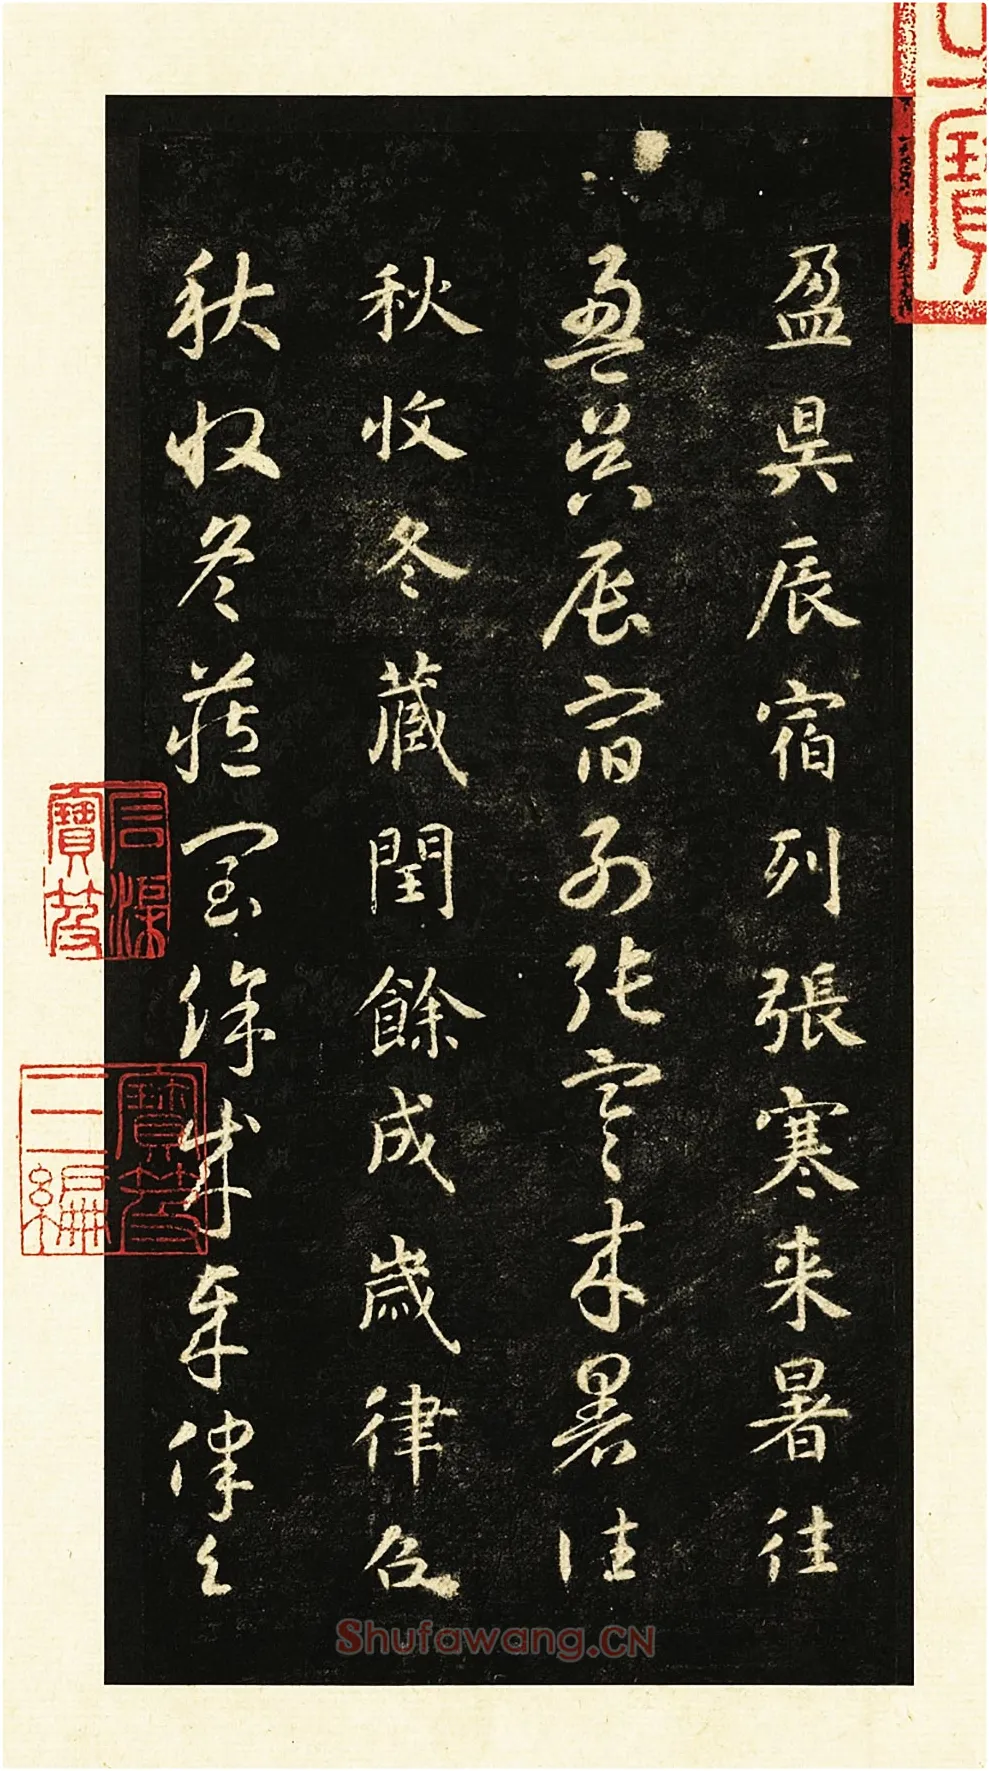 盈昃辰宿列張寒来暑往
盈昃辰宿列張寒来暑往
秋收冬藏閏餘成歲律召
秋收冬藏閏餘成歲律召
寶笈
三編
寶笈
Shufawang.CN